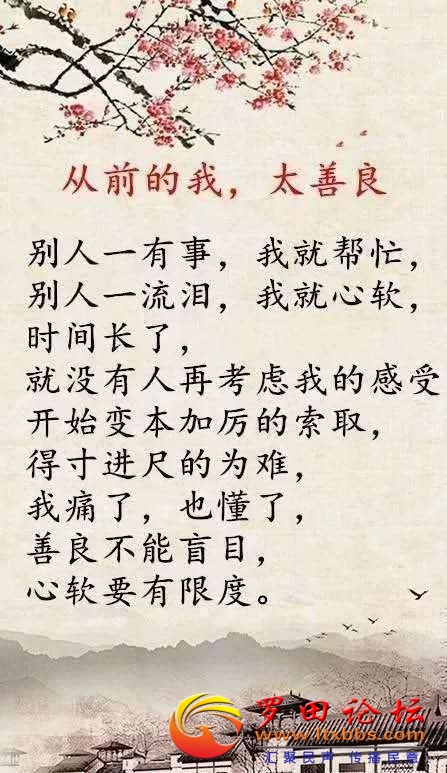 从前的我，太善良
别人一有事，我就帮忙，
别人一流泪，我就心软，
时间长了，
就没有人再考虑我的感受
开始变本加厉的索取，
得寸进尺的为难，
我痛了，也懂了，
善良不能盲目，
心软要有限度。
罗田论坛
www.ltxbbs.com
汇聚民声 传播民意